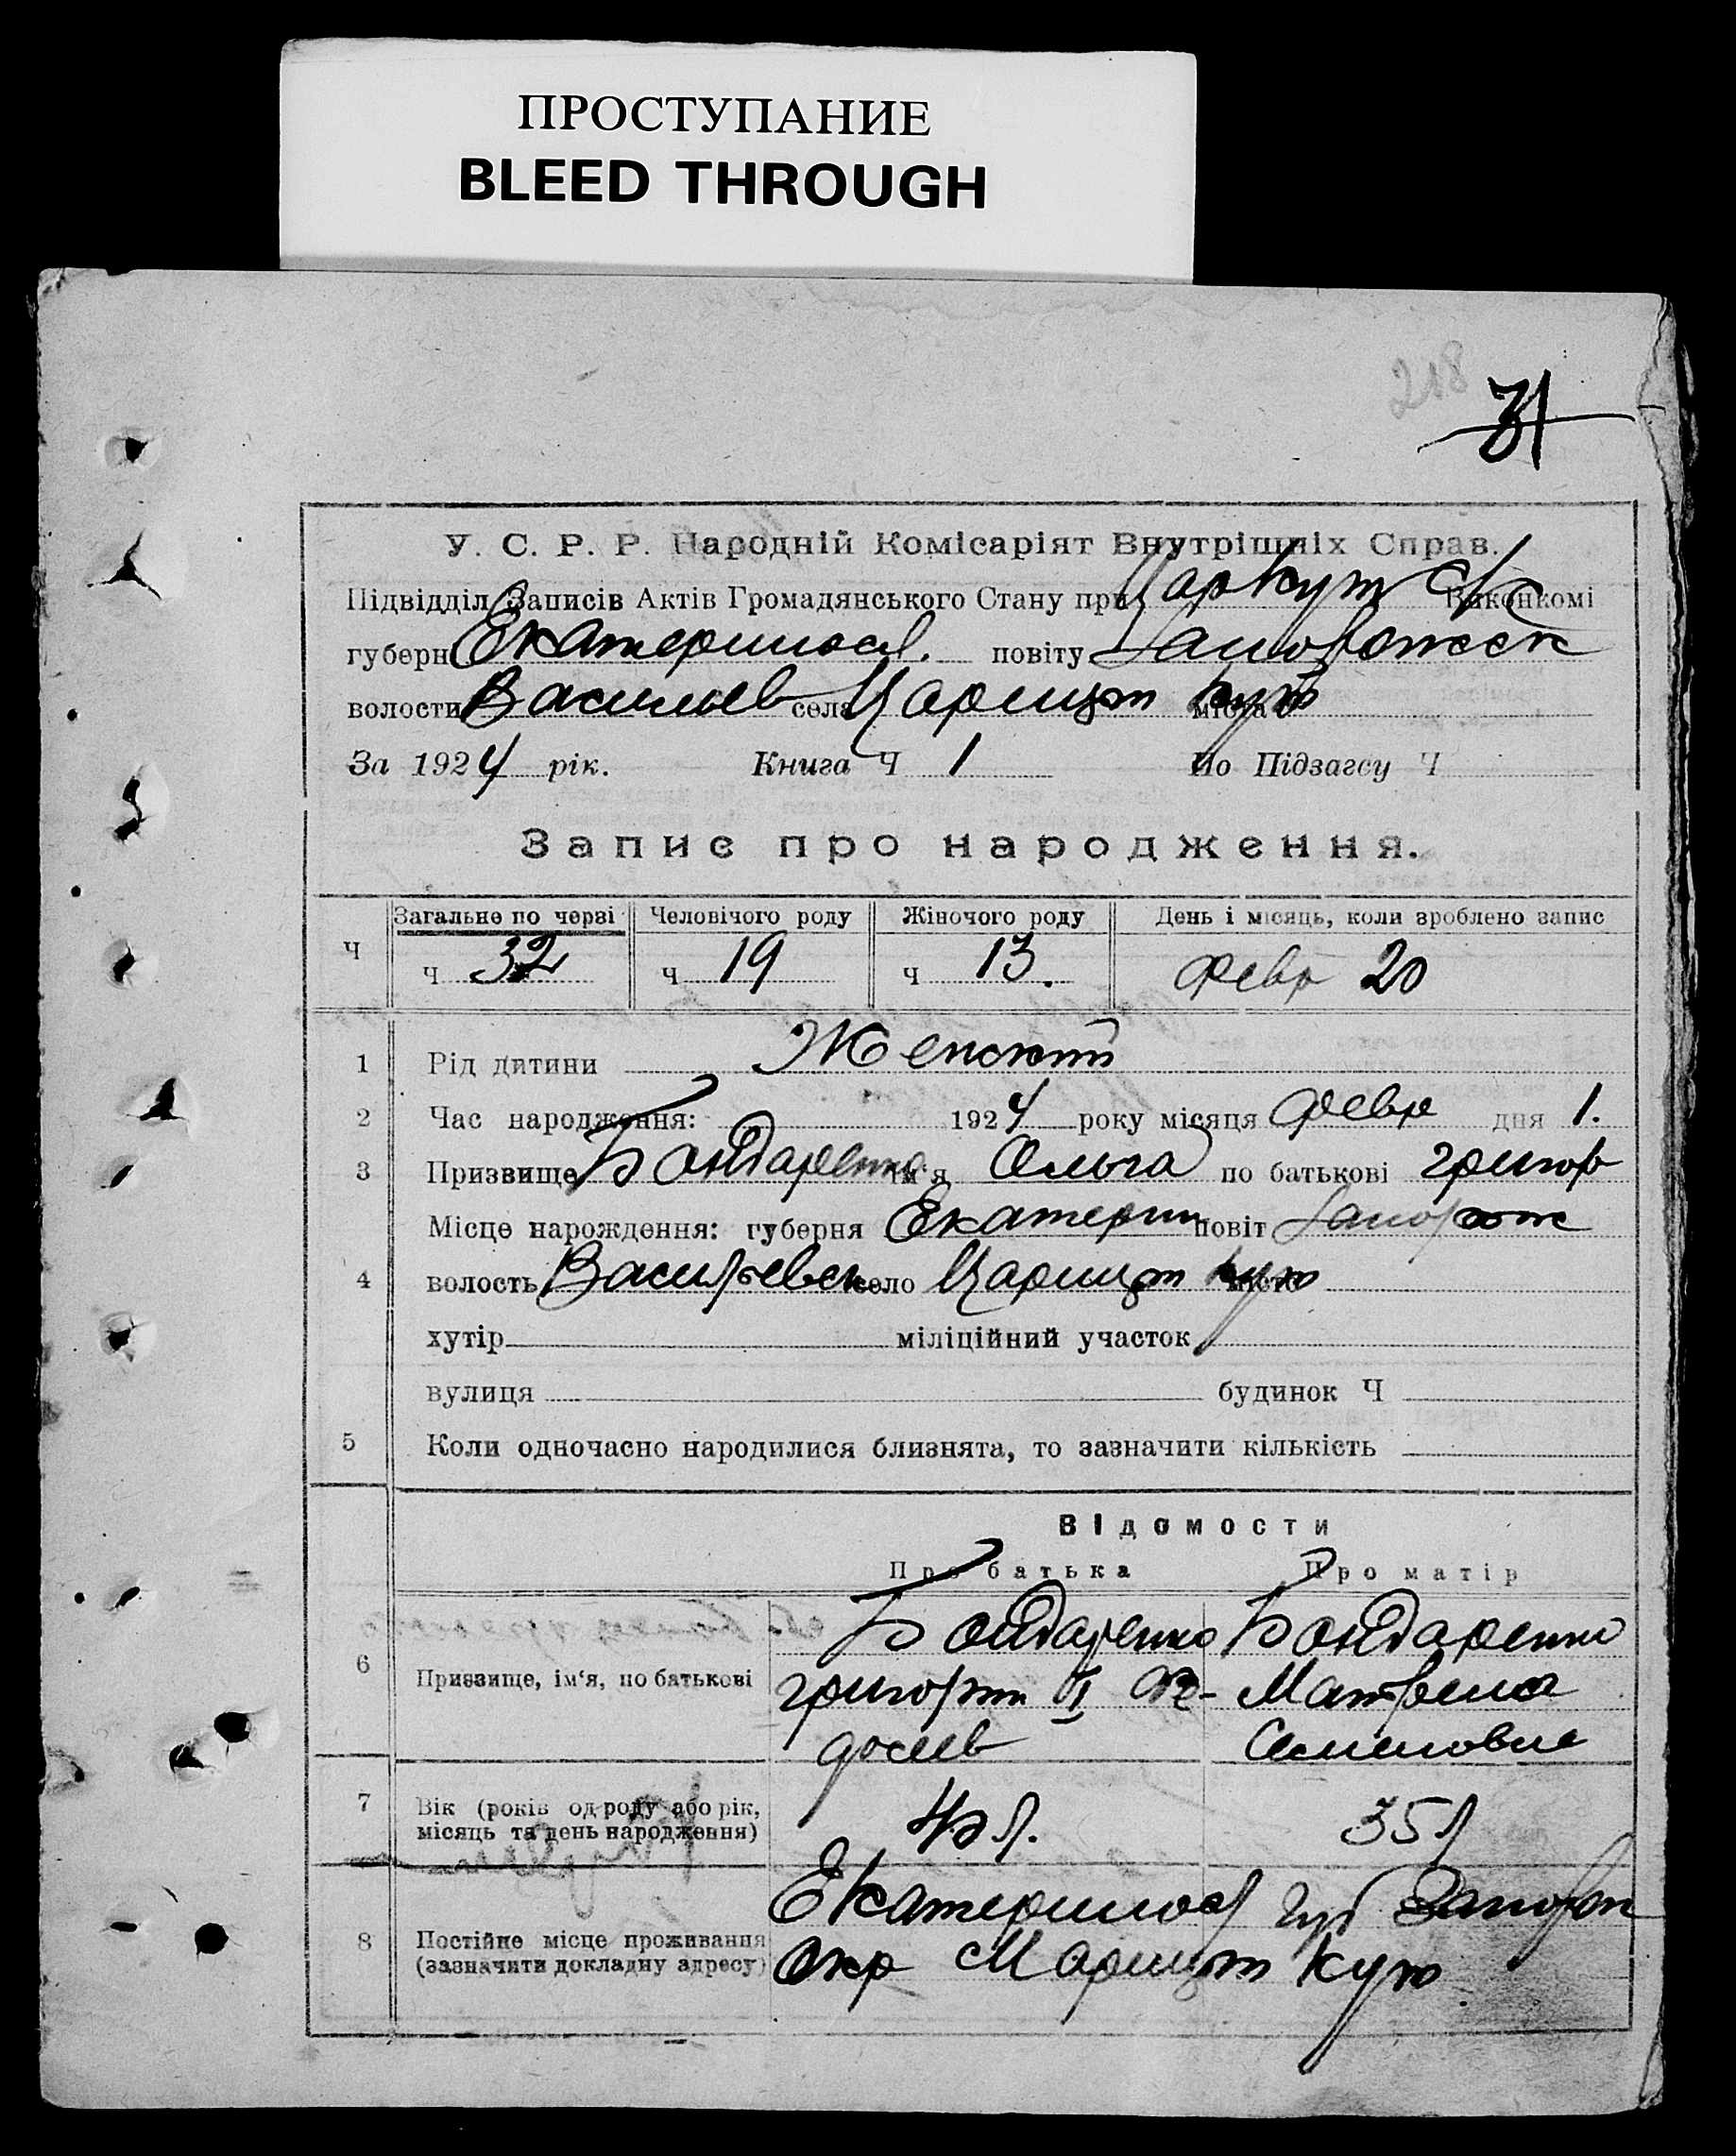 ПРОСТУПАНИЕ
BLEED THROUGH
218
31
У. С. Р. Р. Народній Комісаріят Внутрішніх Справ.
Підвідділ Записів Актів Громадянського Стану при Царкут с/с Виконкомі
губерн Екатериносл. повіту Запорожск
волости Васильев села Царицын Кут міста
За 1924 рік. Книга Ч 1 По Підзагсу Ч
Запис про народження.
Ч Загальне по черзі Человічого роду Жіночого роду День і місяць, коли зроблено запис
ч 32 ч 19 ч 13. Февр 20
1 Рід дитини Женский
2 Час народження: 1924 року місяця Февр дня 1.
3 Призвище Бондаренко Ім'я Ольга по батькові Григор
Місце народження: губерня Екатерин повіт Запорож
4 волость Васильевск село Царицын Кут місто
хутір міліційний участок
вулиця будинок Ч
5 Коли одночасно народилися близнята, то зазначити кількість
Відомости
Про батька Про матір
Бондаренко Бондаренко
6 Призвище, ім'я, по батькові Григорий I Фе- Матрена
досиев Семеновна
7 Вік (років од роду або рік, місяць та день народження) л. 35 л
Екатериносл губ Запорож
8 Постійне місце проживання
(зазначити докладну адресу) Окр Царицын Кут